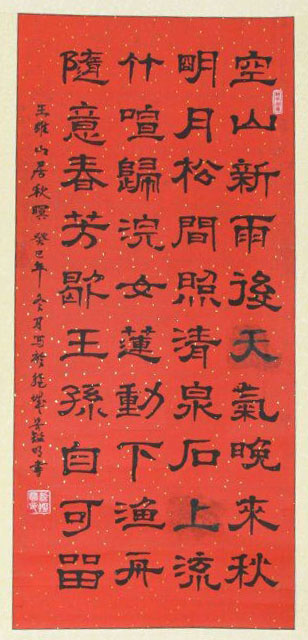 空山新雨後天氣晚來秋
明月松間照清泉石上流
竹喧歸浣女蓮動下渔舟
隨意春芳歇王孫自可留
王維山居秋暝 癸巳年冬月写於龍城 書